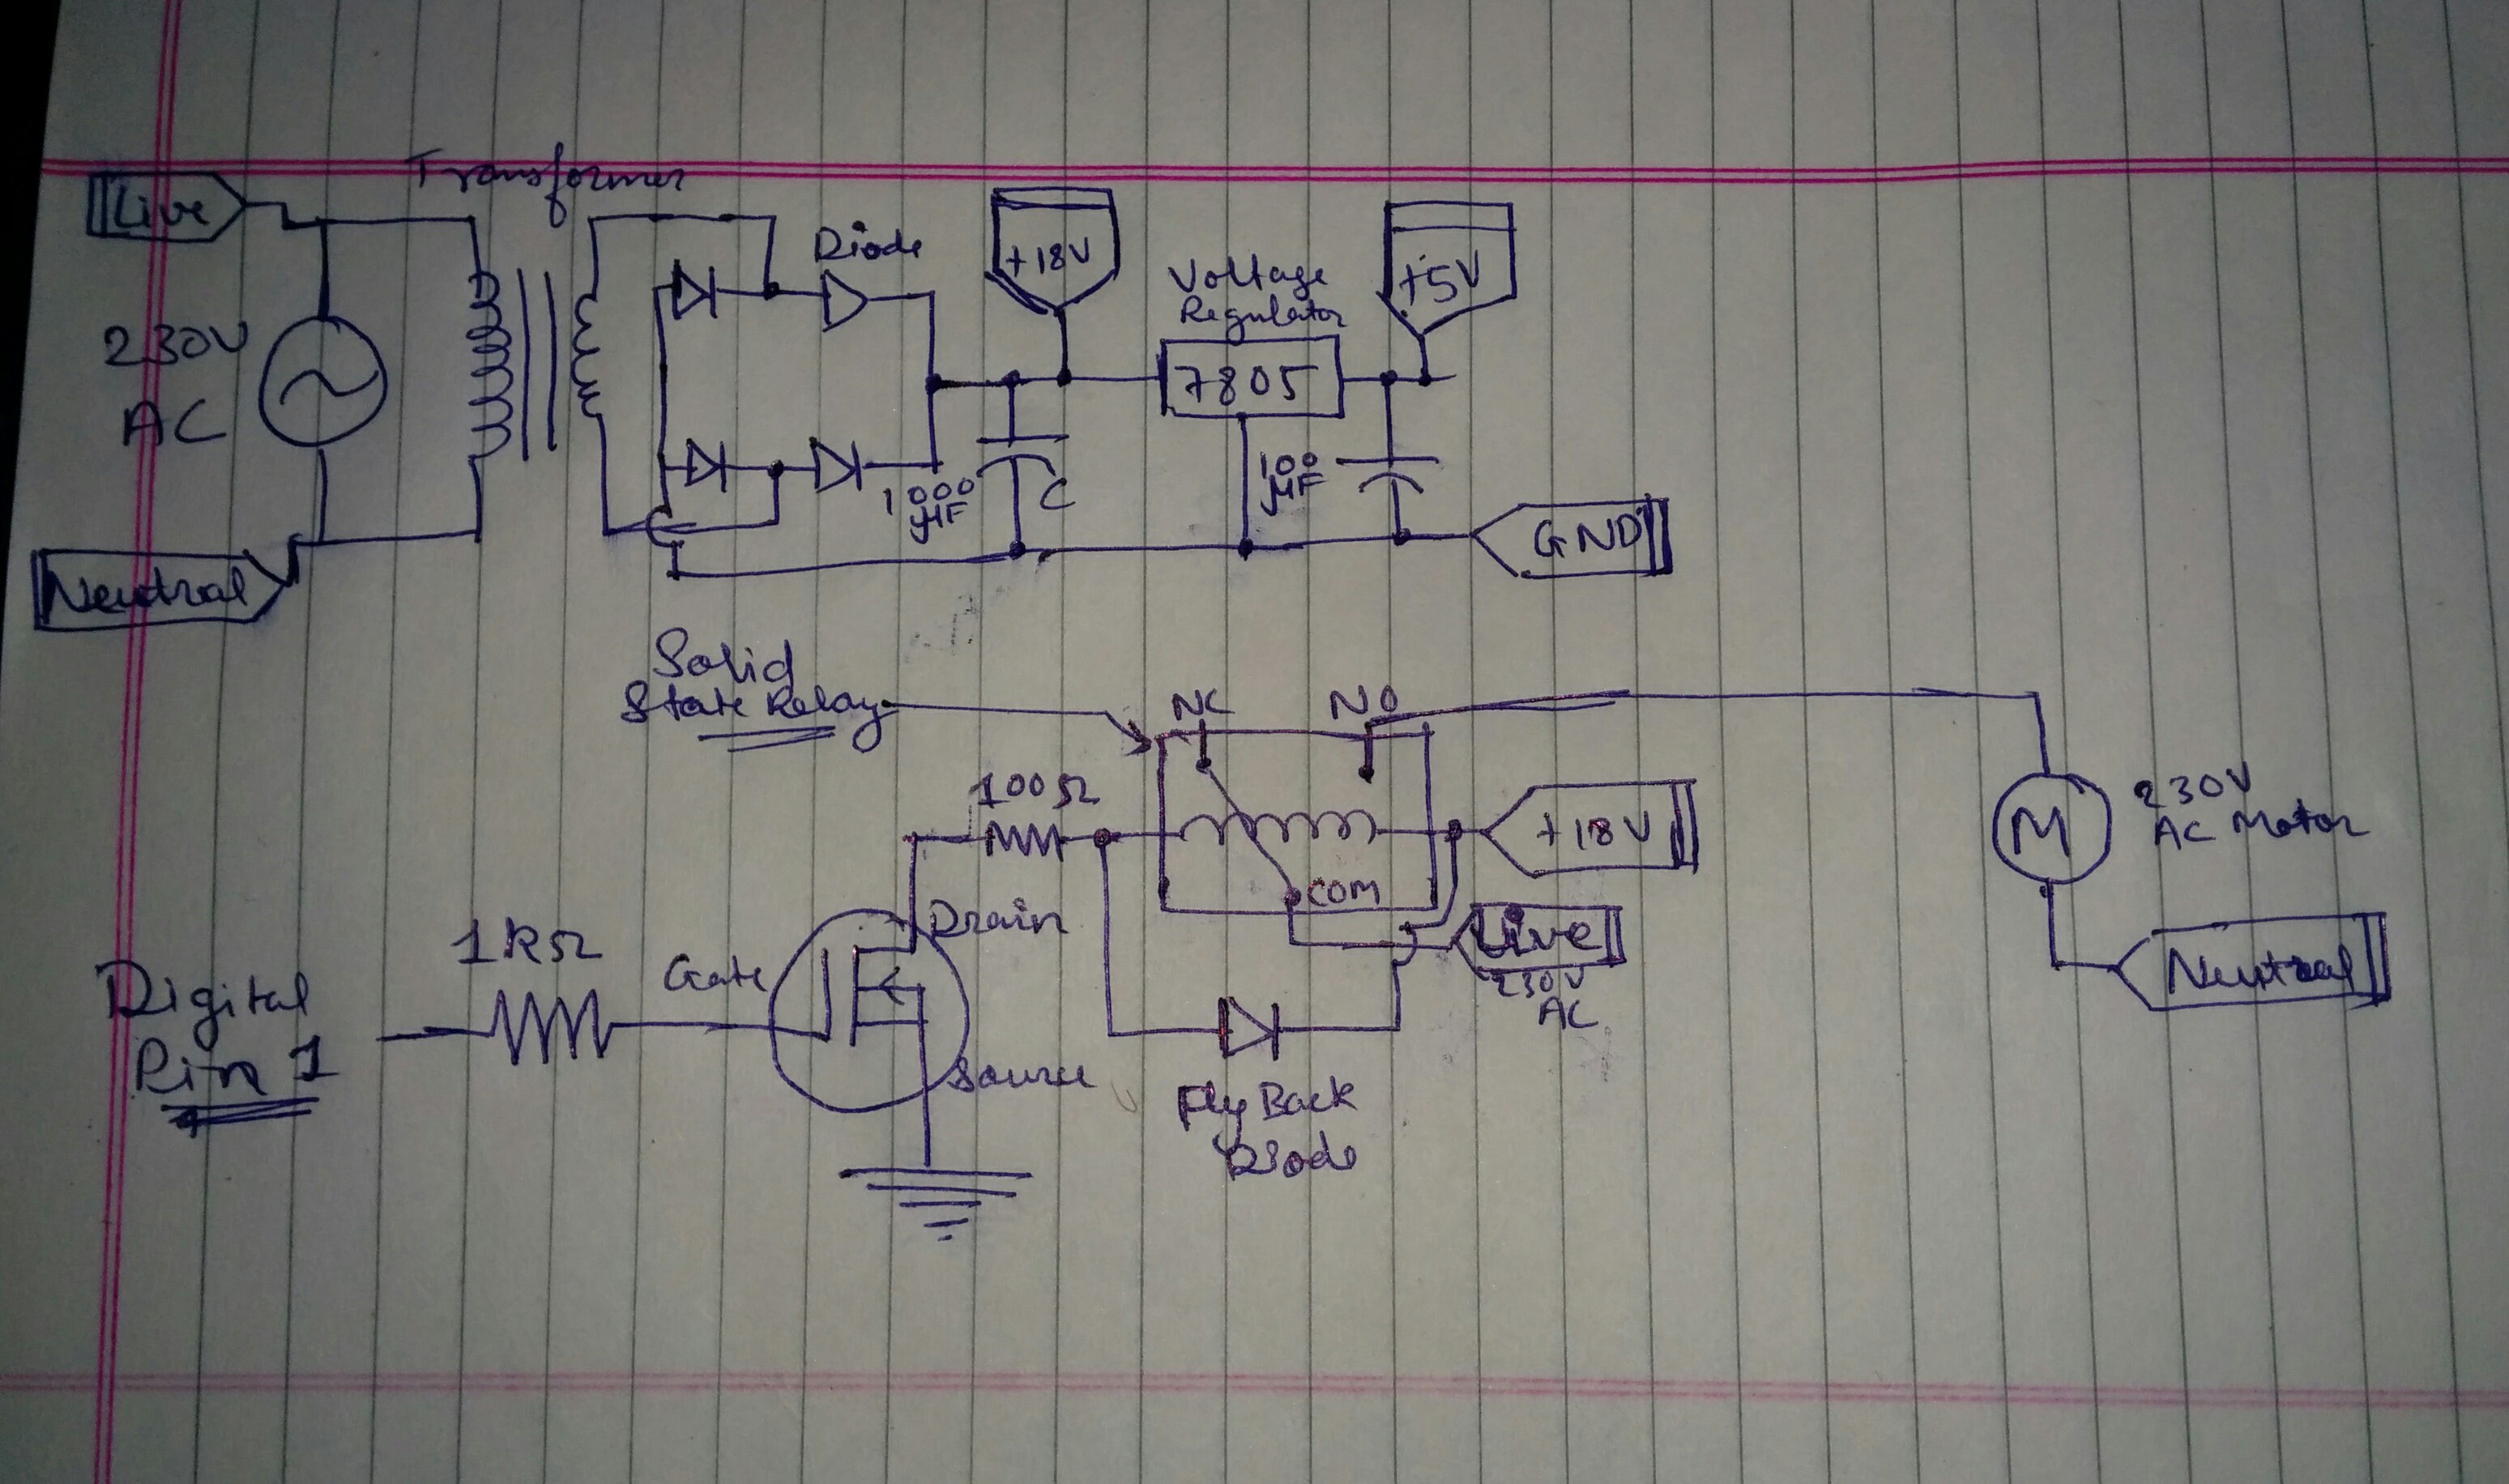 Transformer
Live
Diode
+18V
Voltage
Regulator
+5V
230V
AC
7805
1000
µF
C
100
µF
GND
Neutral
Solid
State Relay
NC
NO
100Ω
+18V
230V
AC Motor
M
COM
Drain
Live
230V
AC
1kΩ
Gate
Neutral
Digital
Pin 1
Source
Fly Back
Diode